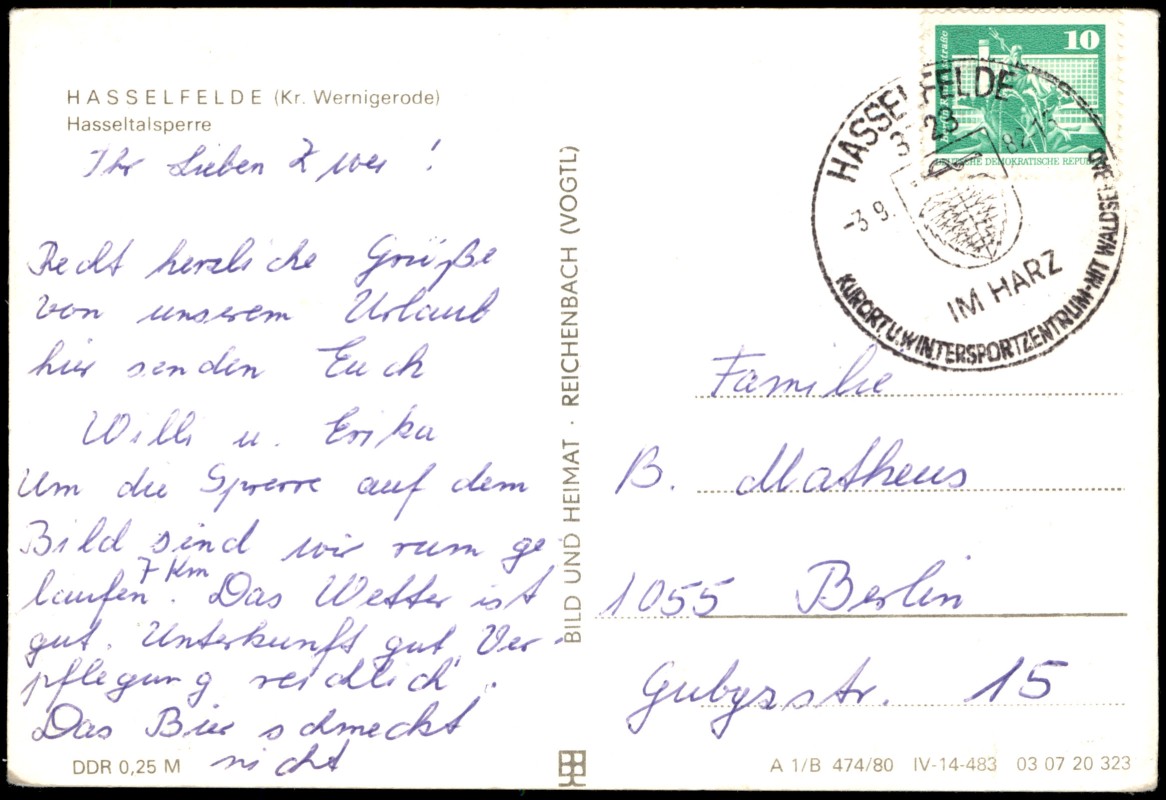 HASSELFELDE (Kr. Wernigerode)
Hasseltalsperre
Ihr Lieben Zwei!
Recht herzliche Grüße
von unserem Urlaub
hier senden Euch
Willi u. Erika
Um die Sperre auf dem
Bild sind wir rum ge
laufen 7 Km. Das Wetter ist
gut. Unterkunft gut Ver-
pflegung reichlich.
Das Bier schmeckt
nicht
DDR 0,25 M
BILD UND HEIMAT · REICHENBACH (VOGTL)
10
DEUTSCHE DEMOKRATISCHE REPUBLIK
HASSELFELDE
-3.9.
82-15
IM HARZ
KURORT U. WINTERSPORTZENTRUM-MIT WALDSEEBAD
Familie
B. Matheus
1055 Berlin
15
A 1/B 474/80 IV-14-483 03 07 20 323